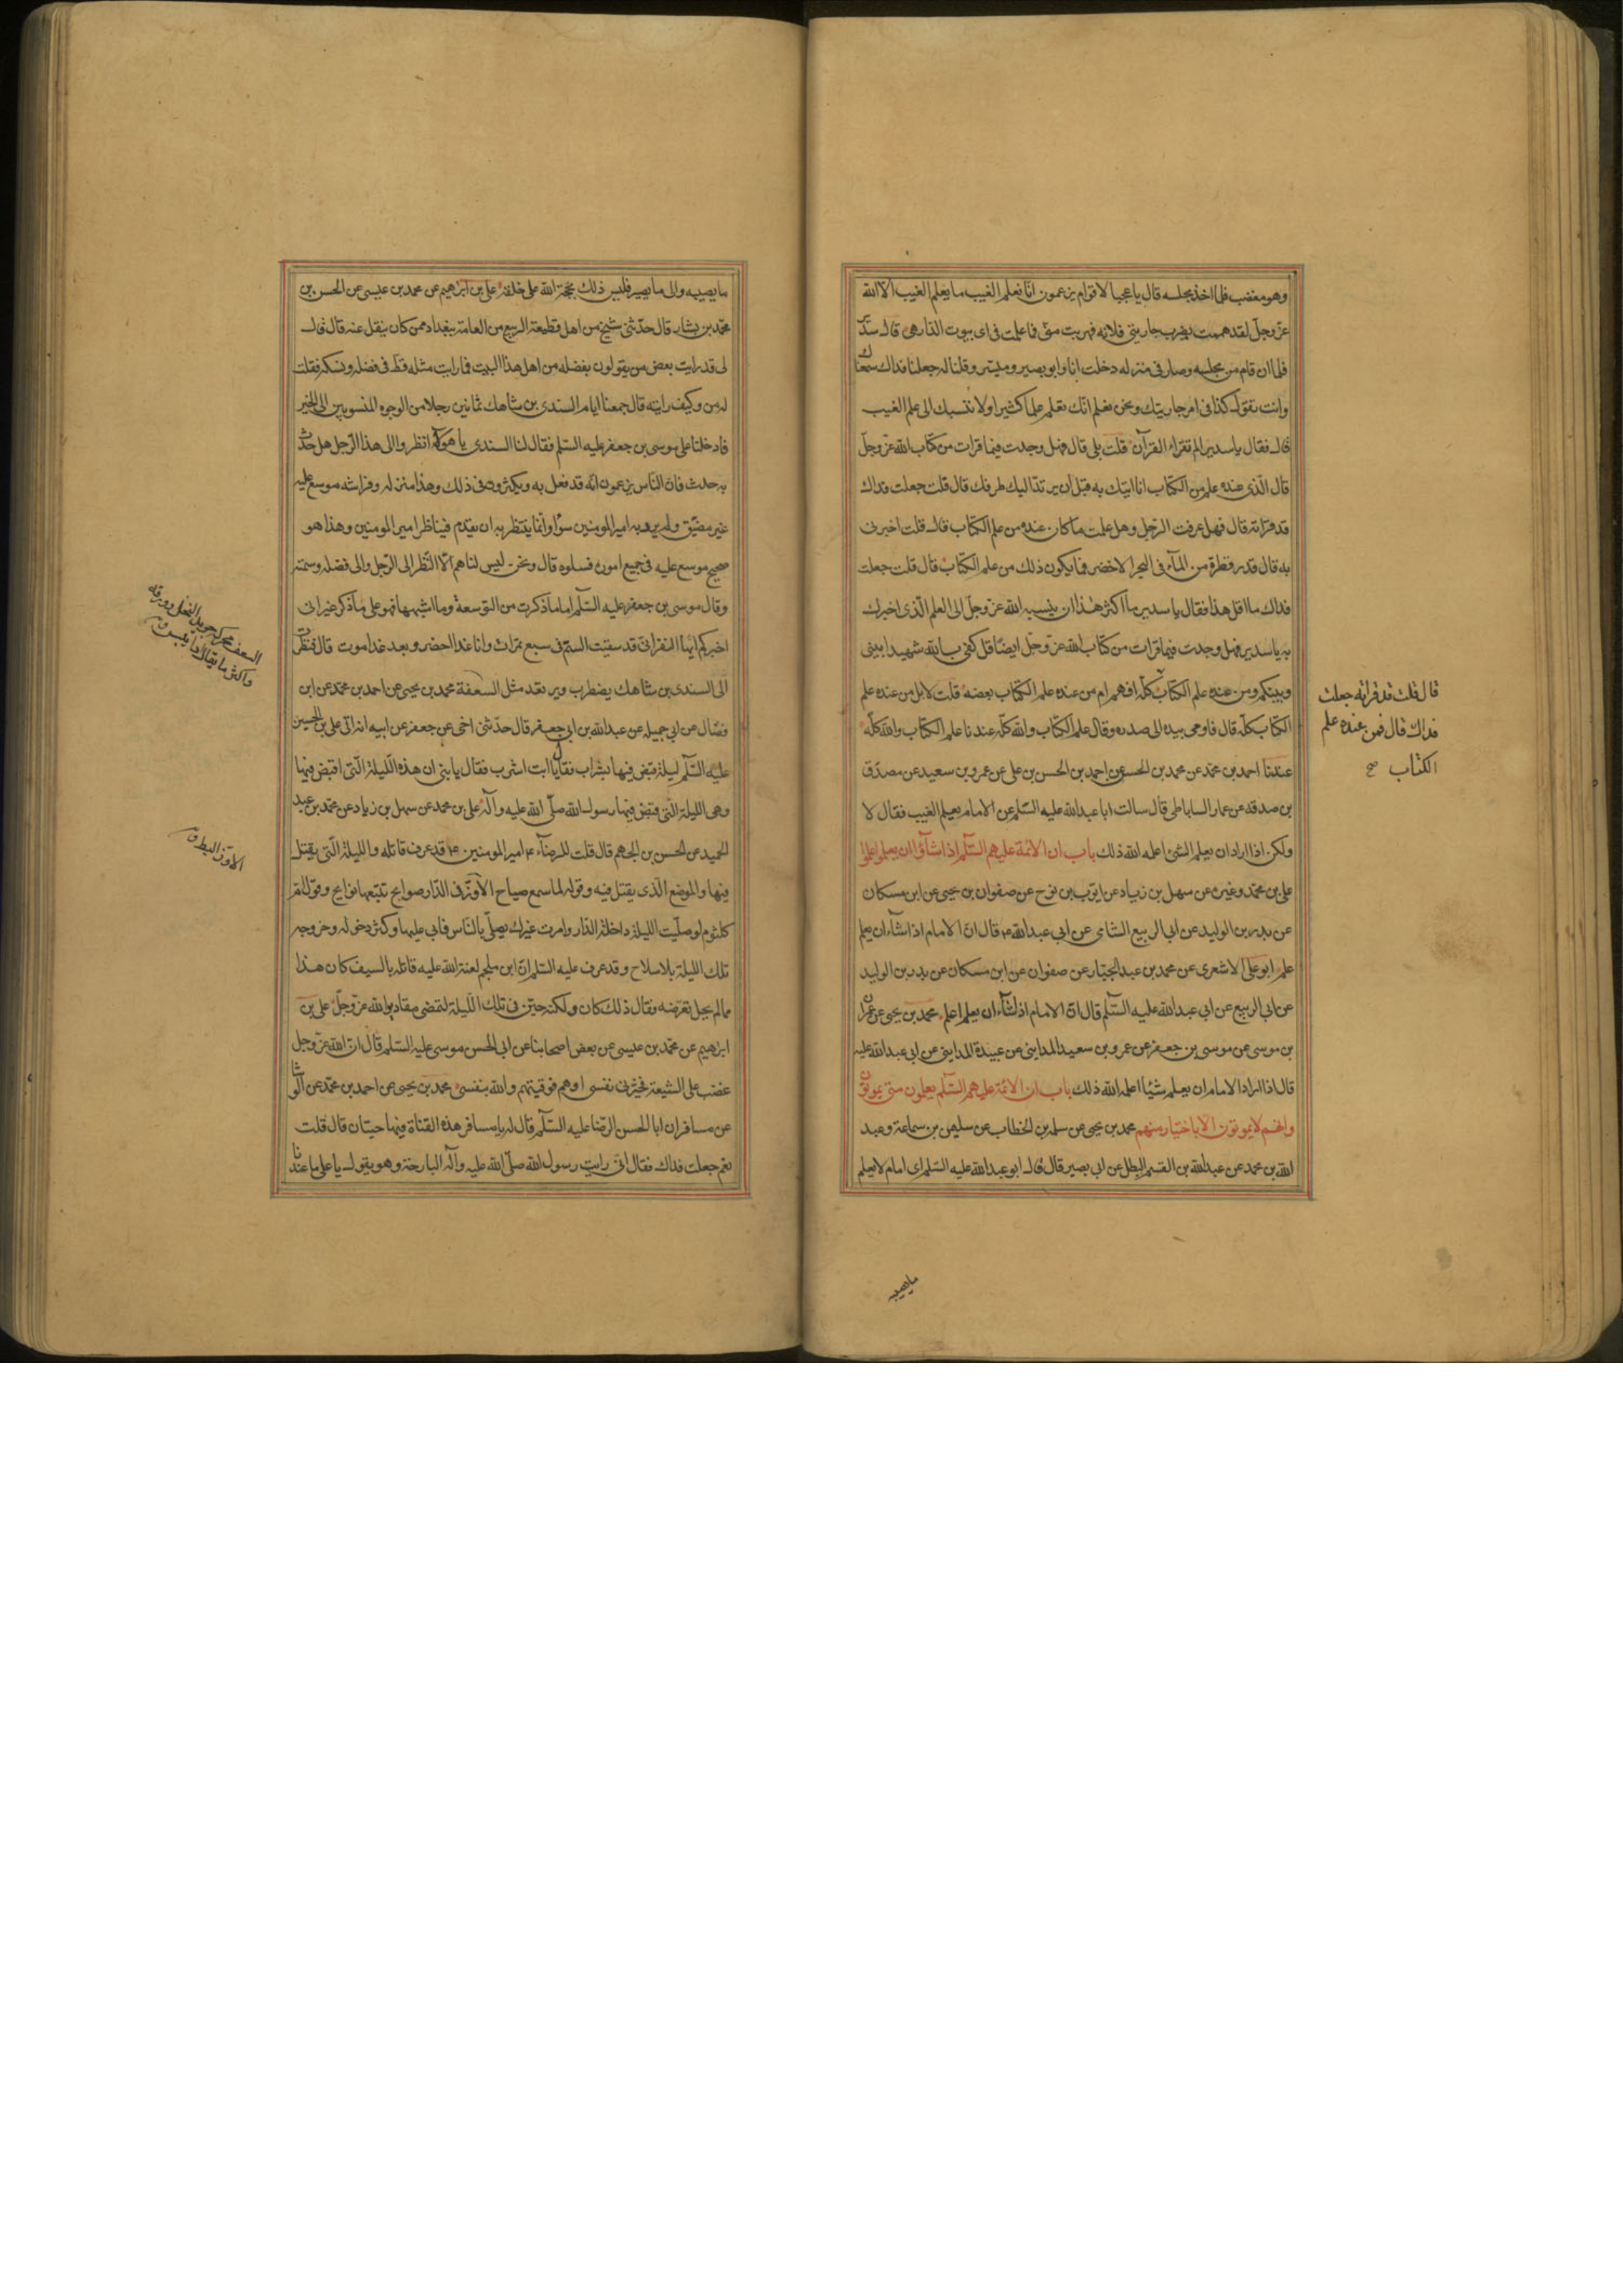 وهو مغضب فلما اخذ مجلسه قال يا عجبا لاقوام يزعمون انا نعلم الغيب ما يعلم الغيب الا الله
عزّ وجلّ لقد هممت بضرب جاريتي فلانه فهربت منّى فما علمت فى اى بيوت الدار هى قال سدير
فلما ان قام من مجلسه وصار فى منزله دخلت انا وابو بصير وميسّر وقلنا له جعلنا فداك سمعناك
وانت تقول كذا فى امر جاريتك ونحن نعلم انّك تعلم علما كثيرا ولا ننسبك الى علم الغيب
قال فقال يا سدير الم تقراء القرآن قلت بلى قال فهل وجدت فيما قرات من كتاب الله عزّ وجلّ
قال الّذى عنده علم من الكتاب انا اتيك به قبل ان يرتدّ اليك طرفك قال قلت جعلت فداك
قد قراته قال فهل عرفت الرّجل وهل علمت ما كان عنده من علم الكتاب قال قلت اخبرنى
به قال قدر قطرة من المآء فى البحر الاخضر فما يكون ذلك من علم الكتاب قال قلت جعلت
فداك ما اقل هذا فقال يا سدير ما اكثر هٰذا ان ينسبه الله عزّ وجلّ الى العلم الّذى اخبرك
به يا سدير فهل وجدت فيما قرات من كتاب الله عزّ وجلّ ايضا قل كفى بالله شهيدا بينى
وبينكم ومن عنده علم الكتاب كلّه افهم ام من عنده علم الكتاب بعضه قلت لا بل من عنده علم
الكتاب كلّه قال فاومى بيده الى صدره وقال علم الكتاب والله كلّه عندنا علم الكتاب والله كلّه
عندنا احمد بن محمّد عن محمد بن الحسن عن احمد بن الحسن بن على عن عمرو بن سعيد عن مصدّق
بن صدقه عن عمار الساباطى قال سالت ابا عبد الله عليه السّلم عن الامام يعلم الغيب فقال لا
ولكن اذا اراد ان يعلم الشئ اعلمه الله ذلك باب ان الائمة عليهم السّلم اذا شآؤا ان يعلموا علموا
على بن محمّد وغيره عن سهل بن زياد عن ايّوب بن نوح عن صفوان بن يحيى عن ابن مسكان
عن بدر بن الوليد عن ابى الربيع الشامى عن ابى عبد الله ع قال انّ الامام اذا شآء ان يعلم
علم ابو على الاشعرى عن محمد بن عبد الجبّار عن صفوان عن ابن مسكان عن بدر بن الوليد
عن ابى الربيع عن ابى عبد الله عليه السّلم قال انّ الامام اذا شآء ان يعلم اعلم محمد بن يحيى عن عمران
بن موسى عن موسى بن جعفر عن عمرو بن سعيد المداينى عن عبيدة المداينى عن ابى عبد الله عليه
قال اذا اراد الامام ان يعلم شيئا اعلمه الله ذلك باب ان الائمّة عليهم السّلم يعلمون متى يموتون
وانهم لا يموتون الا باختيار منهم محمد بن يحيى عن سلمه بن الخطاب عن سليمن بن سماعة وعبد
الله بن محمد عن عبد الله بن القسم البطل عن ابى بصير قال قال ابو عبد الله عليه السّلم اى امام لا يعلم
قال قلت قد قراته جعلت
فداك قال فمن عنده علم
الكتاب صح
ما يصيبه
ما يصيبه والى ما يصير فليس ذلك بحجة الله على خلقه على بن ابرهيم عن محمد بن عيسى عن الحسن بن
محمّد بن بشار قال حدّثنى شيخ من اهل قطيعة الربيع من العامة ببغداد ممن كان ينقل عنه قال قال
لى قد رايت بعض من يقولون بفضله من اهل هذا البيت فما رايت مثله قطّ فى فضله ونسكه فقلت
له من وكيف رايته قال جمعنا ايام السندى بن شاهك ثمانين رجلا من الوجوه المنسوبين الى الخير
فادخلنا على موسى بن جعفر عليه السّلم فقال لنا السندى يا هؤلآء انظروا الى هذا الرّجل هل حدث
به حدث فان النّاس يزعمون انّه قد فعل به ويكثرون فى ذلك وهذا منزله وفراشه موسع عليه
غير مضيّق ولم يرد به امير المومنين سوءا وانّما ينتظر به ان يقدم فيناظر امير المومنين وهذا هو
صحيح موسع عليه فى جميع اموره فسلوه قال ونحن ليس لنا هم الّا النّظر الى الرّجل والى فضله وسمته
وقال موسى بن جعفر عليه السّلم اما ما ذكرت من التوسعة وما اشبهها فهو على ما ذكر غير انى
اخبركم ايّها النفر انّى قد سقيت السمّ فى سبع تمرات وانا غدا اخضر وبعد غد اموت قال فنظرت
الى السندى بن شاهك يضطرب ويرتعد مثل السعفة محمد بن يحيى عن احمد بن محمّد عن ابن
فضّال عن ابى جميله عن عبد الله بن ابى جعفر قال حدّثنى اخى عن جعفر عن ابيه انه اتى على بن الحسين
عليه السّلم ليلة قبض فيها بشراب فقال يا ابت اشرب فقال يا بنى ان هذه اللّيلة الّتى اقبض فيها
وهى الليلة الّتى قبض فيها رسول الله صلّى الله عليه وآله على بن محمد عن سهل بن زياد عن محمّد بن عبد
الحميد عن الحسن بن الجهم قال قلت للرضآء ع امير المومنين ع قد عرف قاتله والليلة الّتى يقتل
فيها والموضع الّذى يقتل فيه وقوله لما سمع صياح الاوزّ فى الدّار صوايح تتبعها نوايح وقول امّ
كلثوم لو صلّيت الليلة داخل الدّار وامرت غيرك يصلّى بالنّاس فابى عليها وكثر دخوله وخروجه
تلك الليلة بلا سلاح وقد عرف عليه السّلم انّ ابن ملجم لعنه الله عليه قاتله بالسيف كان هذا
مما لم يجل تعرّضه فقال ذلك كان ولكنه حيّن فى تلك اللّيلة لتمضى مقادير الله عزّ وجلّ على بن
ابرهيم عن محمّد بن عيسى عن بعض اصحابنا عن ابى الحسن موسى عليه السّلم قال انّ الله عزّ وجل
غضب على الشيعة فخيّرنى نفسى او هم فوقيتهم والله بنفسى محمد بن يحيى عن احمد بن محمّد عن الوشا
عن مسافر ان ابا الحسن الرّضا عليه السّلم قال له يا مسافر هذه القناة فيها حيتان قال قلت
نعم جعلت فداك فقال انّى رايت رسول الله صلّى الله عليه وآله البارحة وهو يقول يا على ما عندنا
السعف محركة جريد النخل او ورقه
واكثر ما يقال اذا يبست ق
الاوزّ البط ق